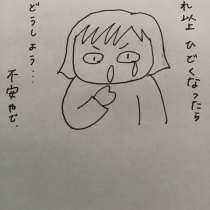 れ以上ひどくなったら
どうしよう…
不安やで、